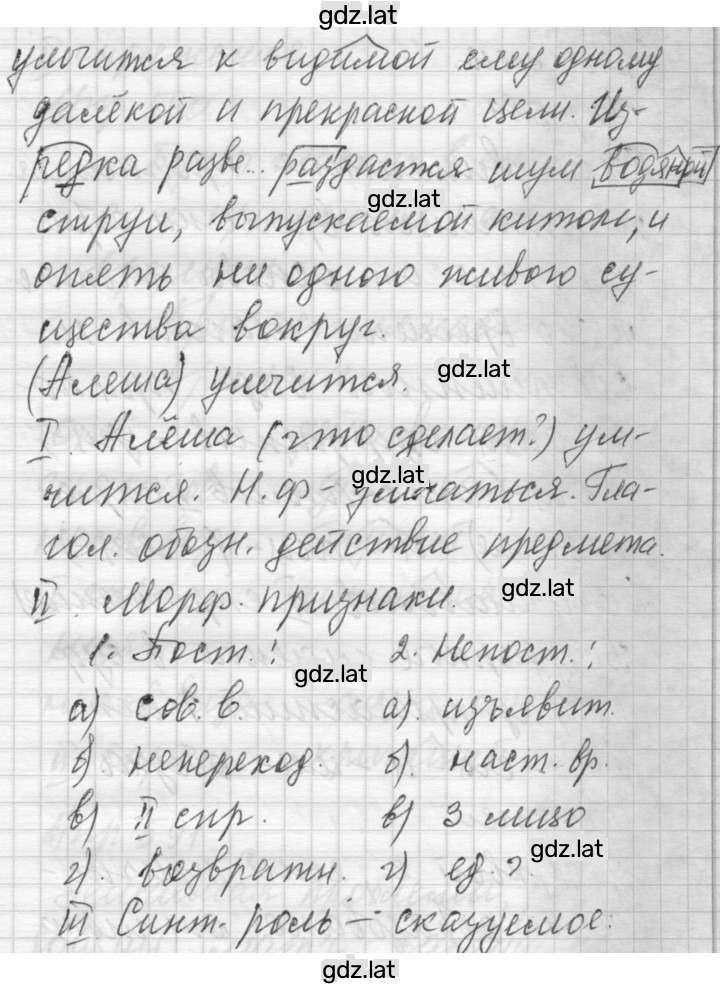 gdz.lat
умчится к видимой ему одному
далёкой и прекрасной цели. Из-
редка разве.. раздастся шум водяной
gdz.lat
струи, выпускаемой китом, и
опять ни одного живого су-
щества вокруг.
gdz.lat
(Алеша) умчится.
I. Алёша (что сделает?) ум-
gdz.lat
чится. Н.ф - умчаться. Гла-
гол. обозн. действие предмета.
gdz.lat
II. Морф. признаки.
1. Пост.: 2. Непост.:
gdz.lat
а) сов. в. а). изъявит.
б) неперехо​д. б). наст. вр.
в) II спр. в) 3 лицо
gdz.lat
г). возвратн. г) ед. ч.
III. Синт. роль - сказуемое.
gdz.lat